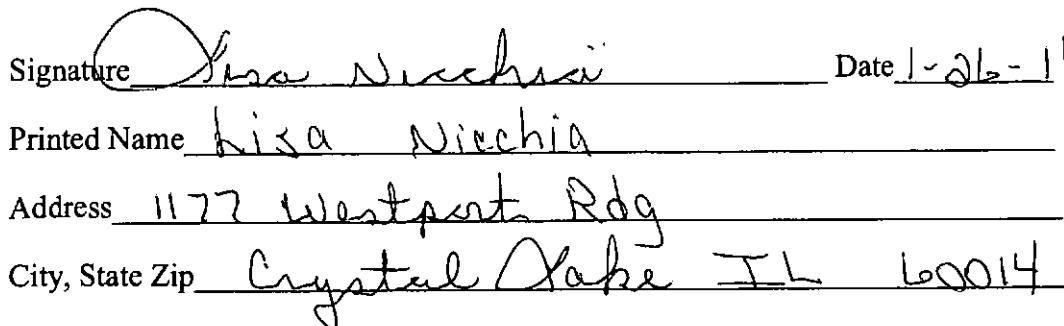 Signature Lisa Nicchia Date 1-26-1
Printed Name Lisa Nicchia
Address 1177 Westport Rdg
City, State Zip Crystal Lake IL 60014